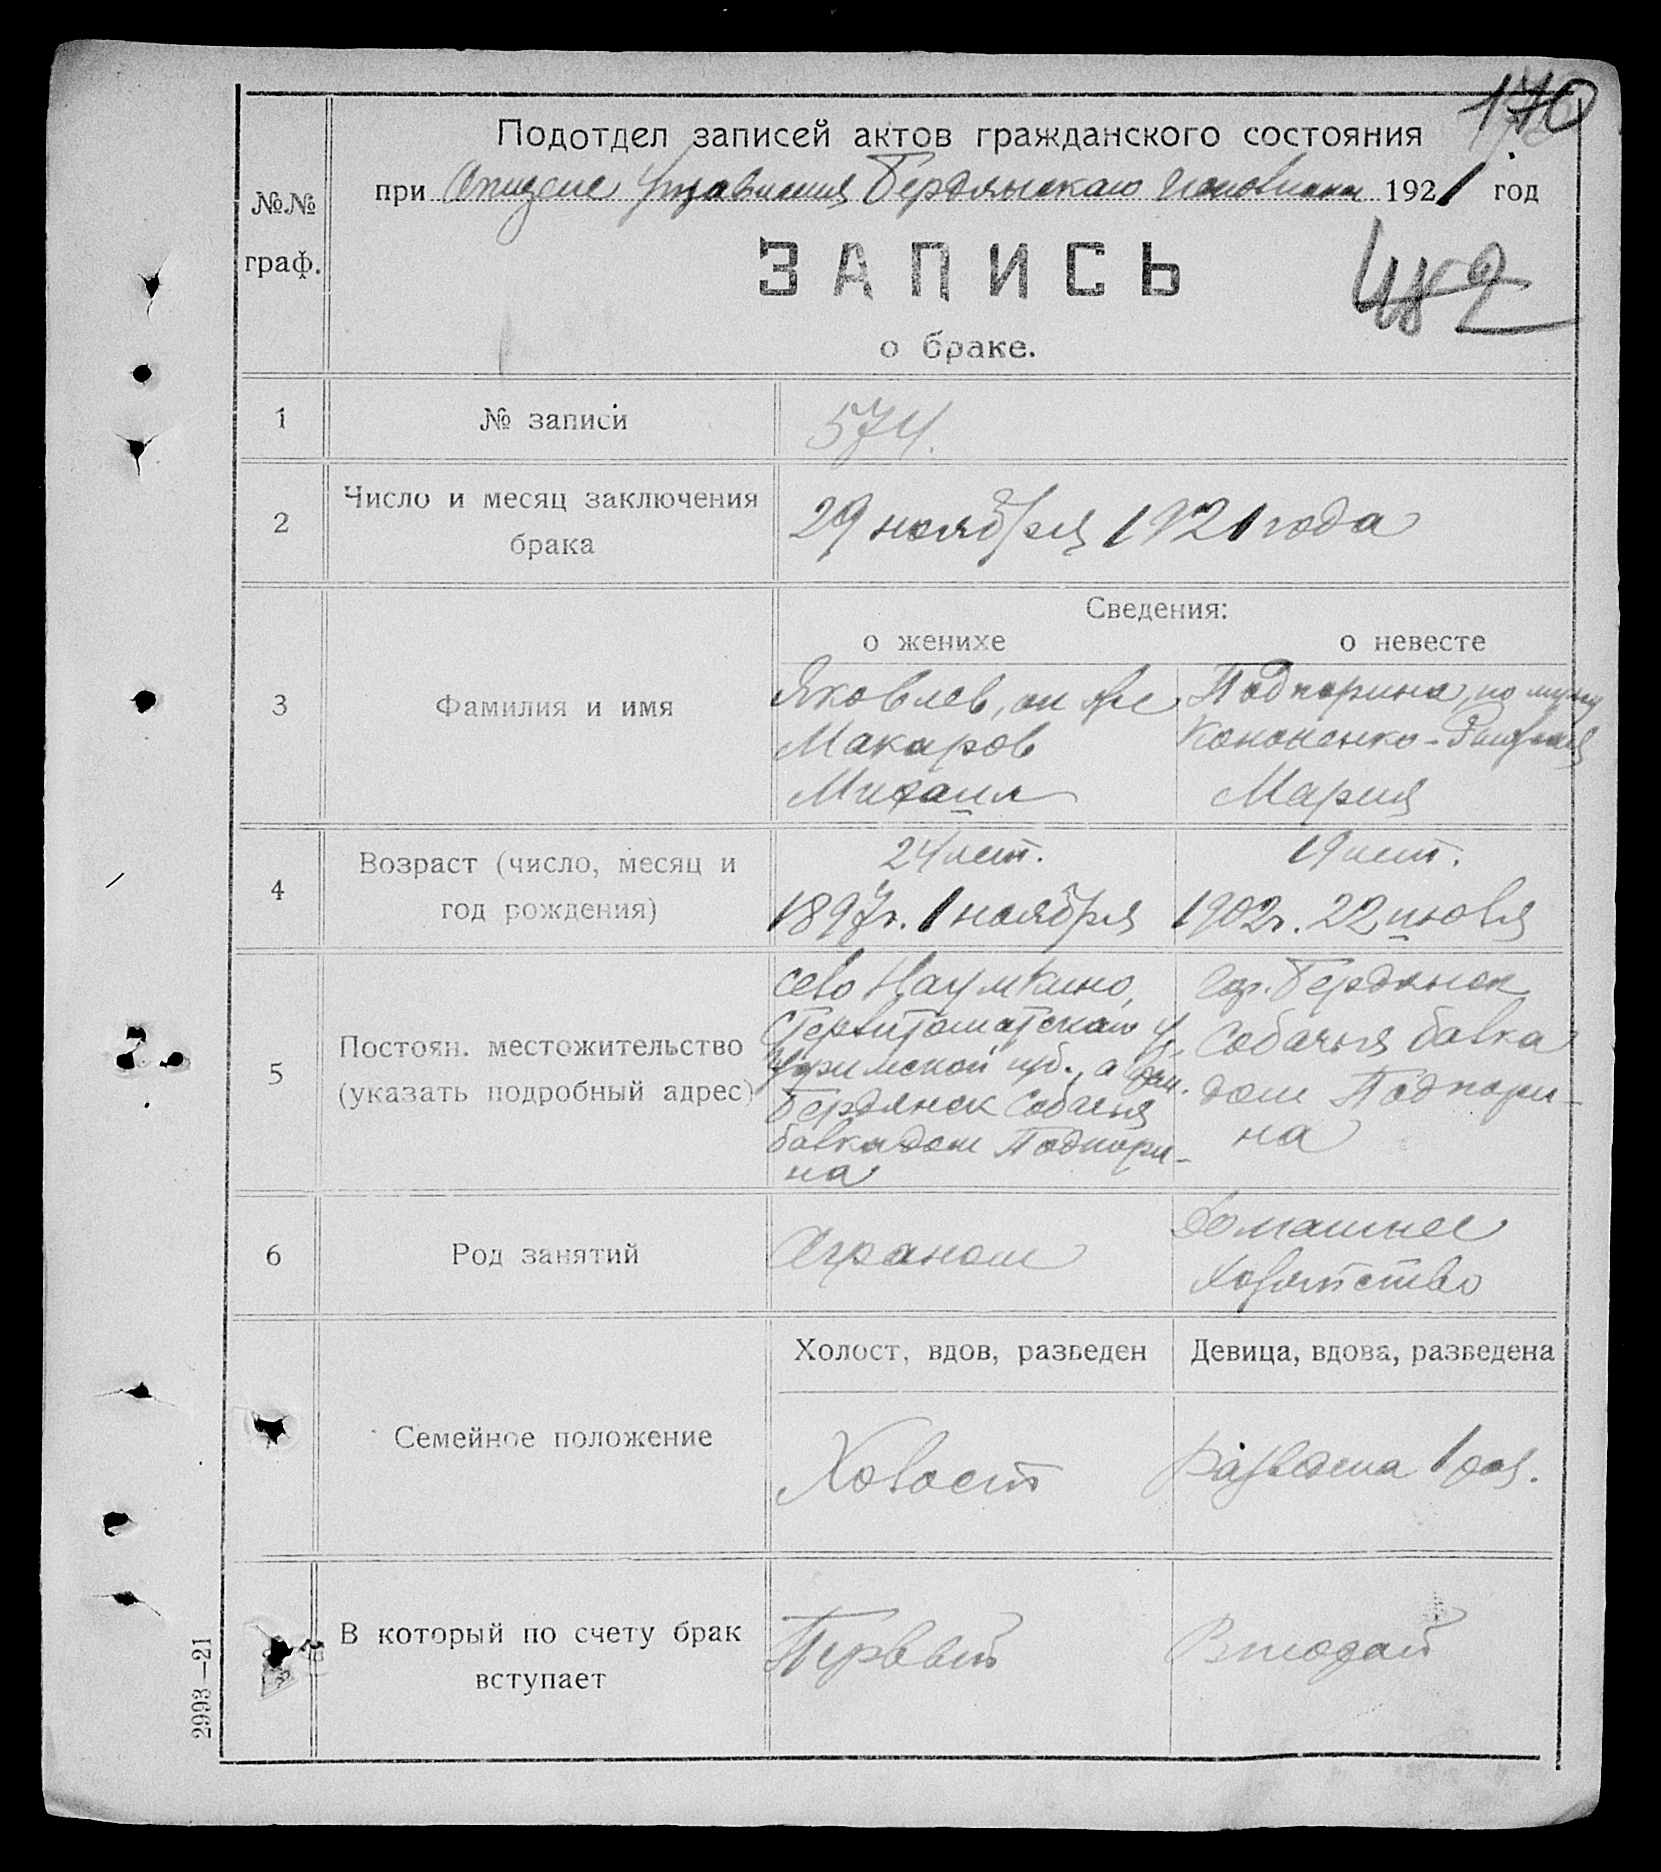 170
Подотдел записей актов гражданского состояния
при Отделе Управления Бердянского Исполкома 1921 год
№№
граф.
ЗАПИСЬ
о браке.
1
№ записи
574.
2
Число и месяц заключения
брака
29 ноября 1921 года
Сведения:
о женихе
о невесте
3
Фамилия и имя
Яковлев, он же
Макаров
Михаил
Подпорина, по мужу
Кононенко-
Мария
4
Возраст (число, месяц и
год рождения)
24 лет.
1897г. 1 ноября
19 лет.
1902г. 22 июля
5
Постоян. местожительство
(указать подробный адрес)
село Наумкино,
Стерлитаматского у.
Уфимской губ., а
Бердянск Собачья
балка дом Подпори-
на
гор. Бердянск
Собачья балка
дом Подпори-
на
6
Род занятий
Агроном
Домашнее
хозяйство
Семейное положение
Холост, вдов, разведен
Девица, вдова, разведена
Холост
Разведена 1 раз.
В который по счету брак
вступает
Первый
Второй
2993—21